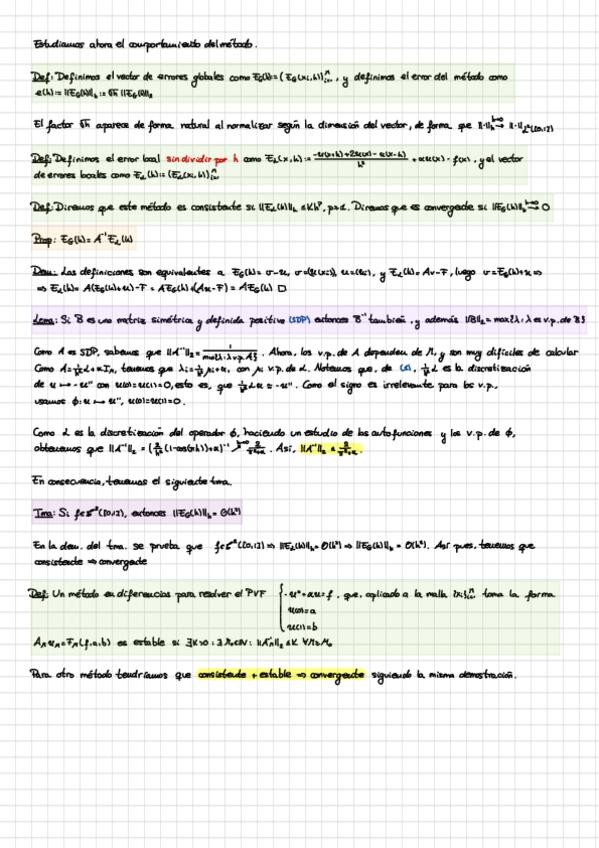 Estudiamos ahora el comportamiento del método.
Def: Definimos el vector de errores globales como E_G(h)=(E_G(x_i,h))_{i=1}^n, y definimos el error del método como
e(h):=||E_G(h)||_h:=√h ||E_G(h)||_2
El factor √h aparece de forma natural al normalizar según la dimensión del vector, de forma que ||·||_h → ||·||_{L²([0,1])}
Def: Definimos el error local sin dividir por h como E_L(x,h):= (-u(x+h)+2u(x)-u(x-h))/h² + αu(x) - f(x), y el vector
de errores locales como E_L(h):=(E_L(x_i,h))_{i=1}^n
Def: Diremos que este método es consistente si ||E_L(h)||_h ≤ Kh^p, p≥1. Diremos que es convergente si ||E_G(h)||_h → 0
Prop: E_G(h)=A⁻¹E_L(h)
Dem: Las definiciones son equivalentes a E_G(h)=v-u, v=(u(x_i)), u=(u_i), y E_L(h)=Av-F, luego v=E_G(h)+u ⇒
⇒ E_L(h)=A(E_G(h)+u)-F=AE_G(h)+(Au-F)=AE_G(h) □
Lema: Si B es una matriz simétrica y definida positiva (SDP) entonces B⁻¹ también, y además ||B||_2=max{λ: λ es v.p. de B}
Como A es SDP, sabemos que ||A⁻¹||_2= 1/min{λ: λ v.p. A}. Ahora, los v.p. de A dependen de M, y son muy difíciles de calcular
Como A=1/h² L+αI_n, tenemos que λ_i=1/h² μ_i+α, con μ_i v.p. de L. Notemos que, de (2), 1/h² L es la discretización
de u ↦ -u'' con u(0)=u(1)=0, esto es, que 1/h² Lu ≈ -u''. Como el signo es irrelevante para los v.p.
usamos ϕ: u ↦ u'', u(0)=u(1)=0.
Como L es la discretización del operador ϕ, haciendo un estudio de las autofunciones y los v.p. de ϕ,
obtenemos que ||A⁻¹||_2 = (2/h²(1-cos(πh))+α)⁻¹ . Así,
En consecuencia, tenemos el siguiente tma.
Tma: Si f∈C²([0,1]), entonces ||E_G(h)||_h = O(h²)
En la dem. del tma. se prueba que f∈C²([0,1]) ⇒ ||E_L(h)||_h=O(h²) ⇒ ||E_G(h)||_h=O(h²). Así pues, tenemos que
consistente ⇒ convergente
Def: Un método en diferencias para resolver el PVF { -u''+αu=f, que, aplicado a la malla {x_i}_{i=1}^n toma la forma
u(0)=a
u(1)=b
A_n u_n=F_n(f,a,b) es estable si ∃K>0: ∃M_0∈ℕ: ||A_n⁻¹||_2 ≤ K ∀M≥M_0
Para otro método tendríamos que consistente + estable ⇒ convergente siguiendo la misma demostración.